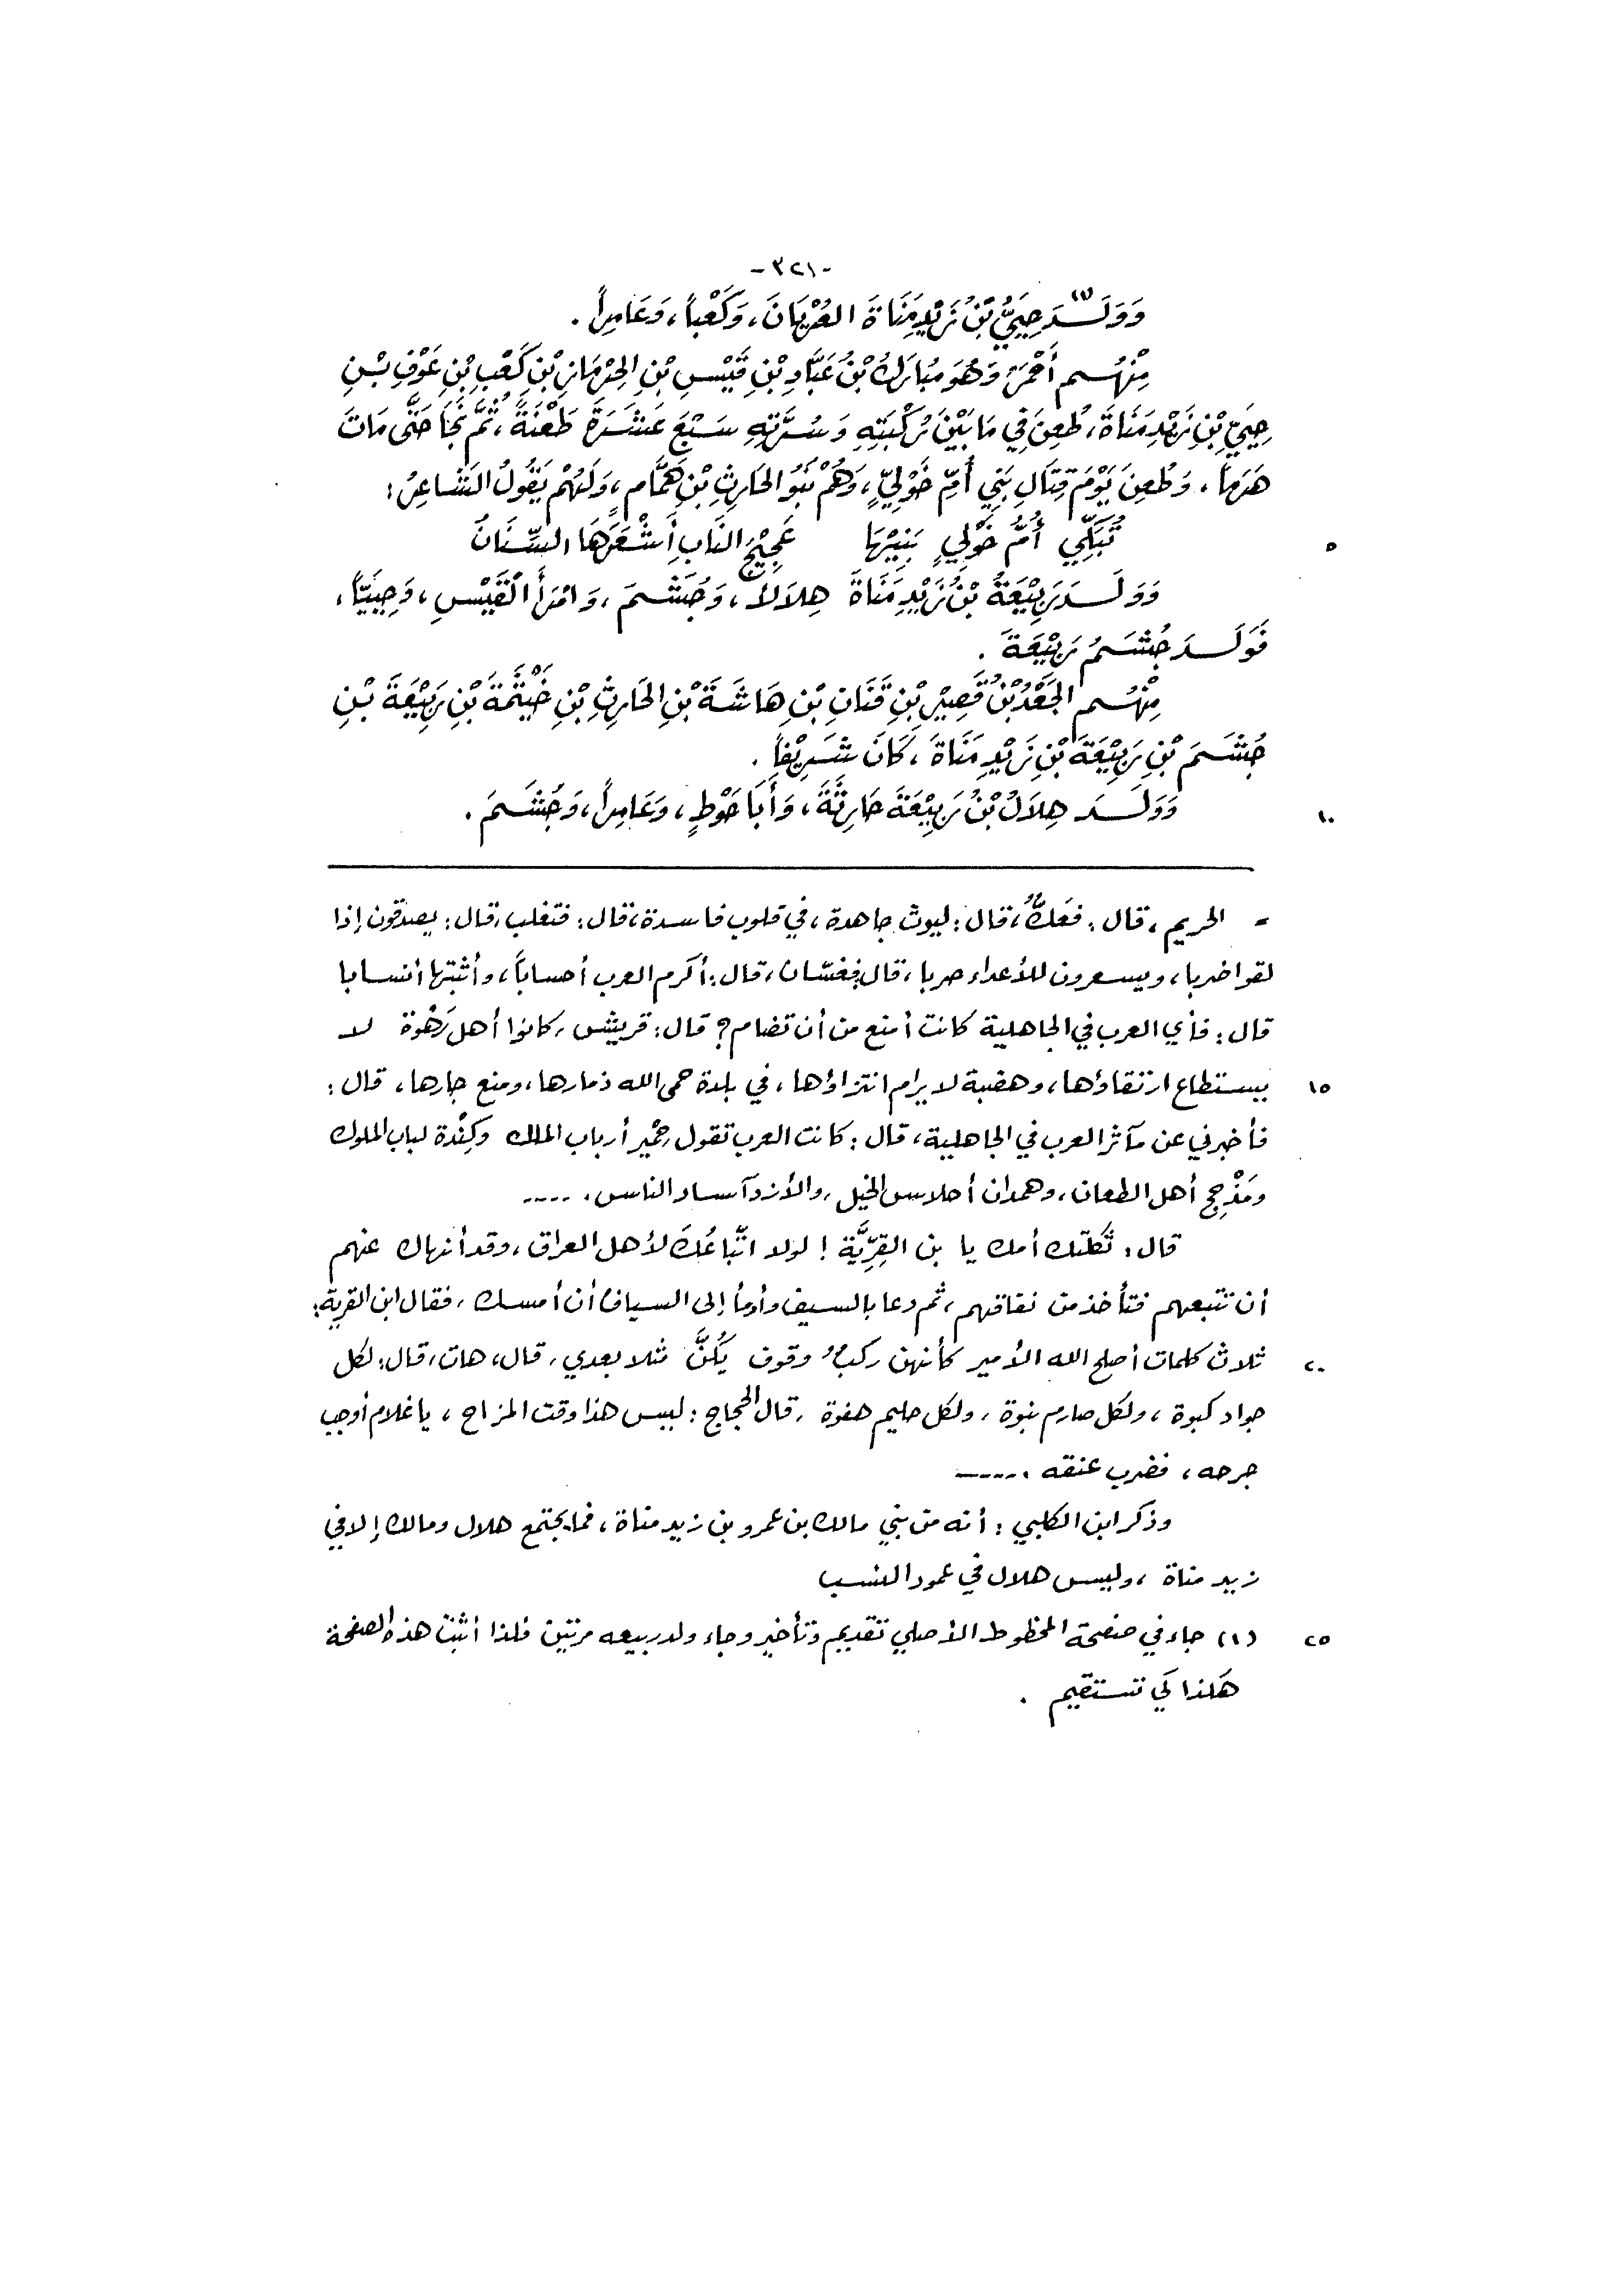 -٣٢١-
وَوَلَــدَ(١) حِيَيُّ بْنُ زَيْدِ مَنَاةَ العُرْيَانَ، وَكَعْباً، وَعَامِراً.
مِنْهُــم أَحْمَرُ وَهُوَ مُبَارَكُ بْنُ عَبَّادِ بْنِ قَيْسِ بْنِ الحِرْمَازِ بْنِ كَعْبِ بْنِ عَوْفِ بْــنِ
حِيَيِّ بْنِ زَيْدِ مَنَاةَ، طُعِنَ فِي مَا بَيْنَ رُكْبَتِهِ وَسُرَّتِهِ سَبْعَ عَشَرَةَ طَعْنَةً، ثُمَّ نَجَا حَتَّى مَاتَ
هَرَماً، وَطُعِنَ يَوْمَ قِتَالِ بَنِي أُمِّ خَوْلِيٍّ، وَهُمْ بَنُو الحَارِثِ بْنِ هَمَّامٍ، وَلَهُمْ يَقُولُ الشَّاعِرُ:
تُبَكِّي أُمُّ خَوْلِيٍ بَنِيْهَا    عَجِيْجُ النَابِ أَشْعَرَهَا السِّنَانُ
٥
وَوَلَــدَ رَبِيْعَةُ بْنُ زَيْدِ مَنَاةَ هِلَالاً، وَجُشَــمَ، وَامْرَأَ القَيْسِ، وَحِيَيّاً،
فَوَلَــدَ جُشَــمُ رَبِيْعَةَ.
مِنْهُــم الجَعْدُ بْنُ قَصِيْرِ بْنِ قَنَانِ بْنِ هَاشَةَ بْنِ الحَارِثِ بْنِ خَيْثَمَةَ بْنِ رَبِيْعَةَ بْــنِ
جُشَــمَ بْنِ رَبِيْعَةَ بْنِ زَيْدِ مَنَاةَ، كَانَ شَــرِيْفاً.
وَوَلَــدَ هِلَالُ بْنُ رَبِيْعَةَ حَارِثَةَ، وَأَبَا حَوْطٍ، وَعَامِراً، وَجُشَــمَ.
١٠
= الحريم، قال: فعَكٌّ، قال: ليوث جاهدة، في قلوب فاسدة، قال: فتغلب، قال: يصدقون إذا
لقوا ضربا، ويسعرون للأعداء حربا، قال: فغسّان، قال: أكرم العرب أحساباً، وأثبتها أنسابا
قال: فأي العرب في الجاهلية كانت أمنع من أن تضام؟ قال: قريش، كانوا أهل رَهْوة لا
يستطاع ارتقاؤها، وهضبة لا يرام انتزاؤها، في بلدة حمى الله ذمارها، ومنع جارها، قال:
١٥
فأخبرني عن مآثر العرب في الجاهلية، قال: كانت العرب تقول حِمْير أرباب الملك وكِنْدة لباب الملوك
ومَذْحِج أهل الطعان، وهمدان أحلاس الخيل، والأزد آساد الناس. ....
قال: ثكلتك أمك يا بن القِرِّيَّة! لولا اتّباعُكَ لأهل العراق، وقد أنهاك عنهم
أن تتبعهم فتأخذ من نفاقهم، ثم دعا بالسيف وأومأ إلى السياف أن أمسك، فقال ابن القرية:
ثلاث كلمات أصلح الله الأمير كأنهن ركبٌ وقوف يَكُنَّ مثلا بعدي، قال، هات، قال: لكل
٢٠
جواد كبوة، ولكل صارم نبوة، ولكل حليم هفوة، قال الحجاج: ليس هذا وقت المزاح، يا غلام أوجب
جرحه، فضرب عنقه. ....
وذكر ابن الكلبي: أنه من بني مالك بن عمرو بن زيد مناة، فما يجتمع هلال ومالك إلا في
زيد مناة، وليس هلال في عمود النسب
(١) جاء في صفحة المخطوط الأصلي تقديم وتأخير وجاء ولد ربيعه مرتين فلذا أثبت هذه الصفحة
٢٥
هكذا كي تستقيم.